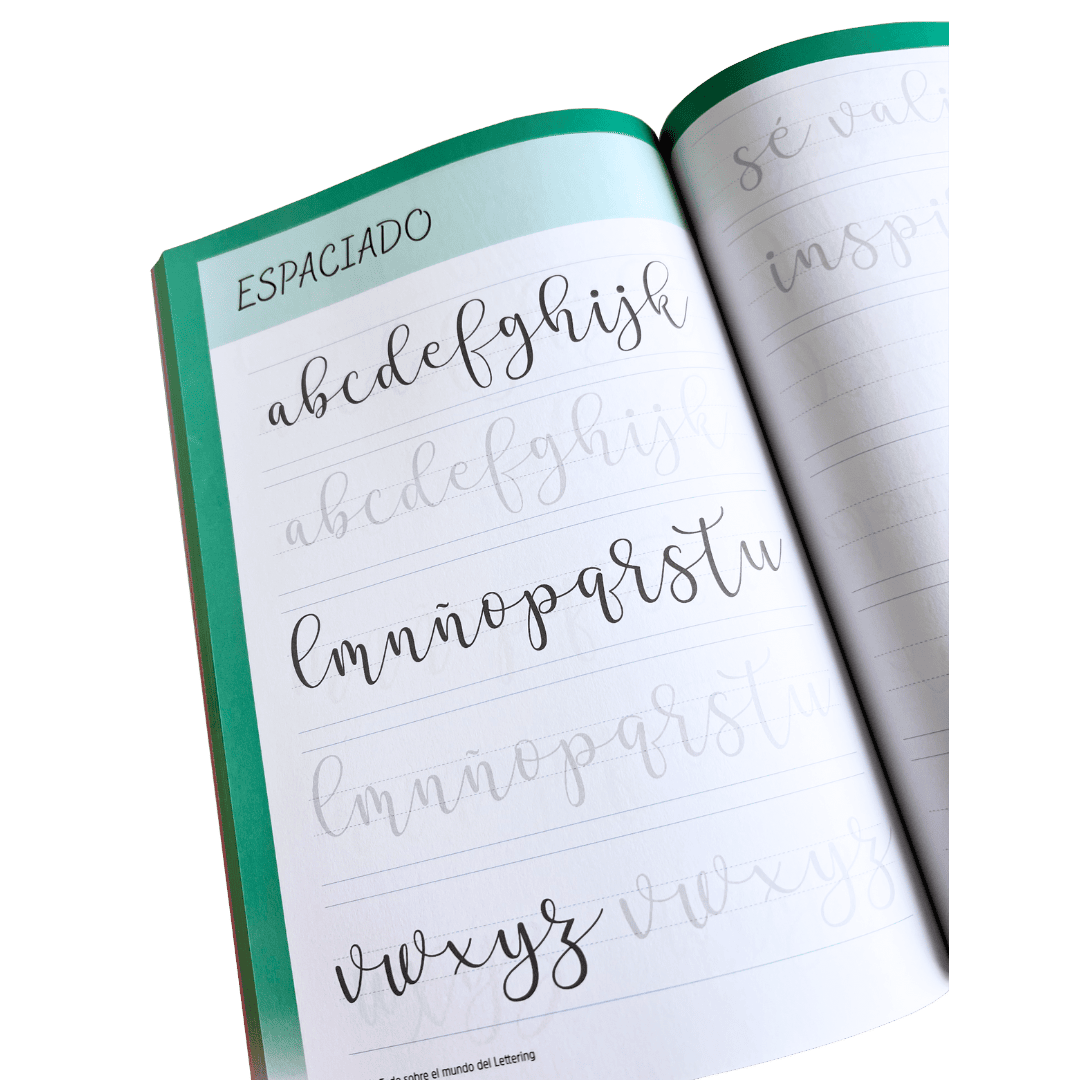 ESPACIADO
abcdefghijk
abcdefghijk
lmnñopqrstu
lmnñopqrstu
vwxyz vwxyz
sobre el mundo del Lettering
sé